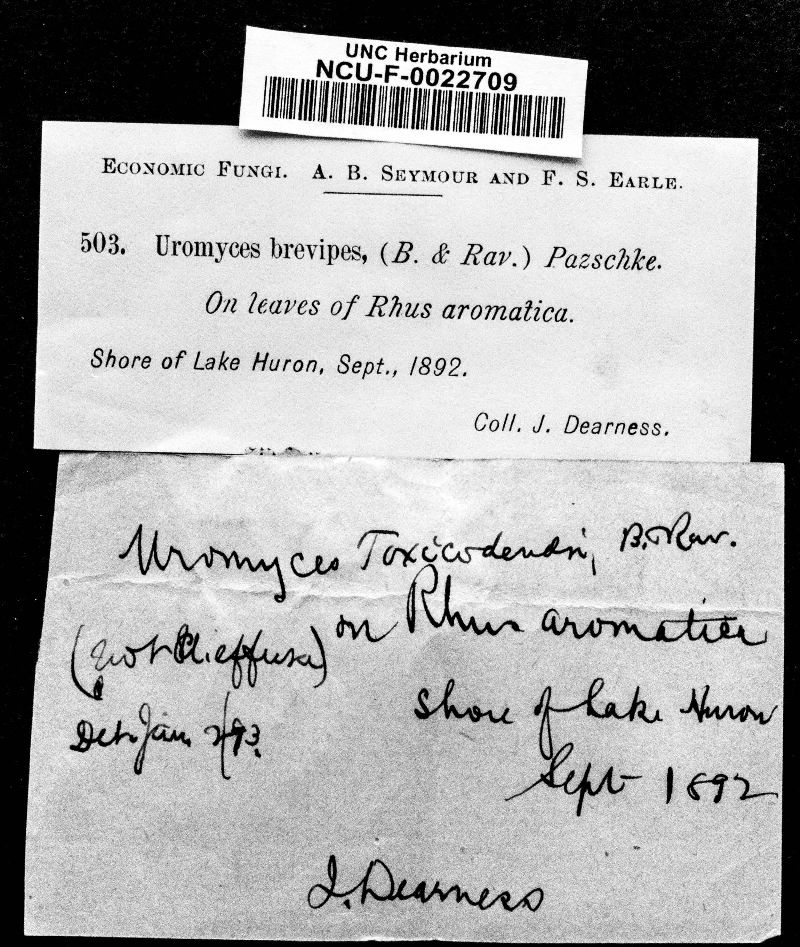 UNC Herbarium
NCU-F-0022709
ECONOMIC FUNGI. A. B. SEYMOUR AND F. S. EARLE.
503. Uromyces brevipes, (B. & Rav.) Pazschke.
On leaves of Rhus aromatica.
Shore of Lake Huron, Sept., 1892.
Coll. J. Dearness.
Uromyces Toxicodendri, B. & Rav.
on Rhus aromatica
(not effusa)
Shore of Lake Huron
Det. Jan. /93.
Sept 1892
J. Dearness